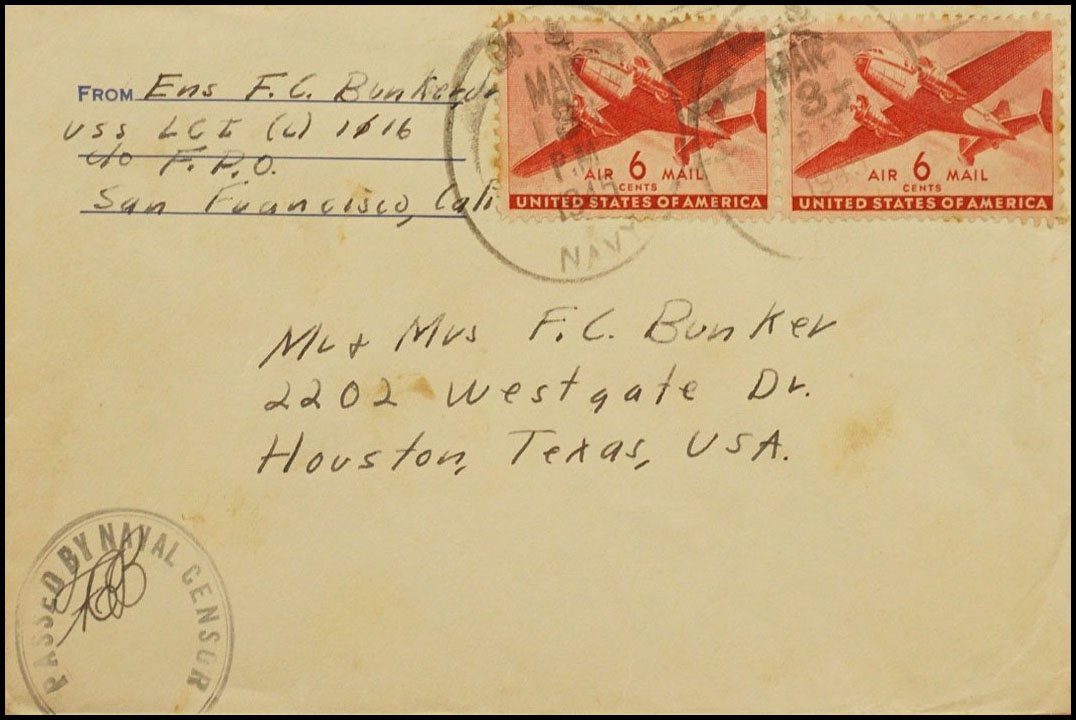 FROM Ens F.C. Bunker, Jr
USS LCI (L) 1016
c/o F.P.O.
San Francisco, Cali
MAR
P.M.
1945
NAVY
AIR 6 MAIL
CENTS
UNITED STATES OF AMERICA
MAR
AIR 6 MAIL
CENTS
UNITED STATES OF AMERICA
Mr + Mrs F.C. Bunker
2202 Westgate Dr.
Houston, Texas, USA.
PASSED BY NAVAL CENSOR